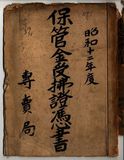 昭和十二年度
保管金受拂證憑書
專賣局